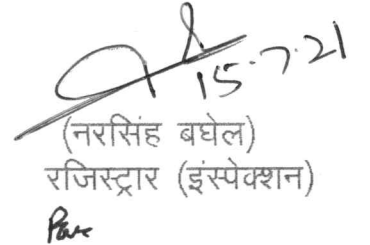 15.7.21
(नरसिंह बघेल)
रजिस्ट्रार (इंस्पेक्शन)